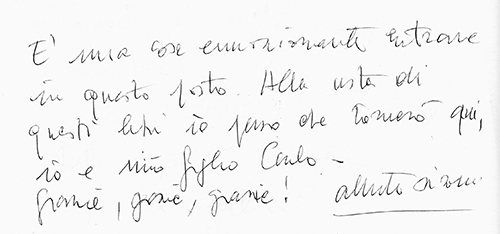 E' una cosa emozionante entrare
in questo posto. Alla vista di
questi libri io penso che tornerò qui,
io e mio figlio Carlo –
grazie, grazie, grazie! Alberto